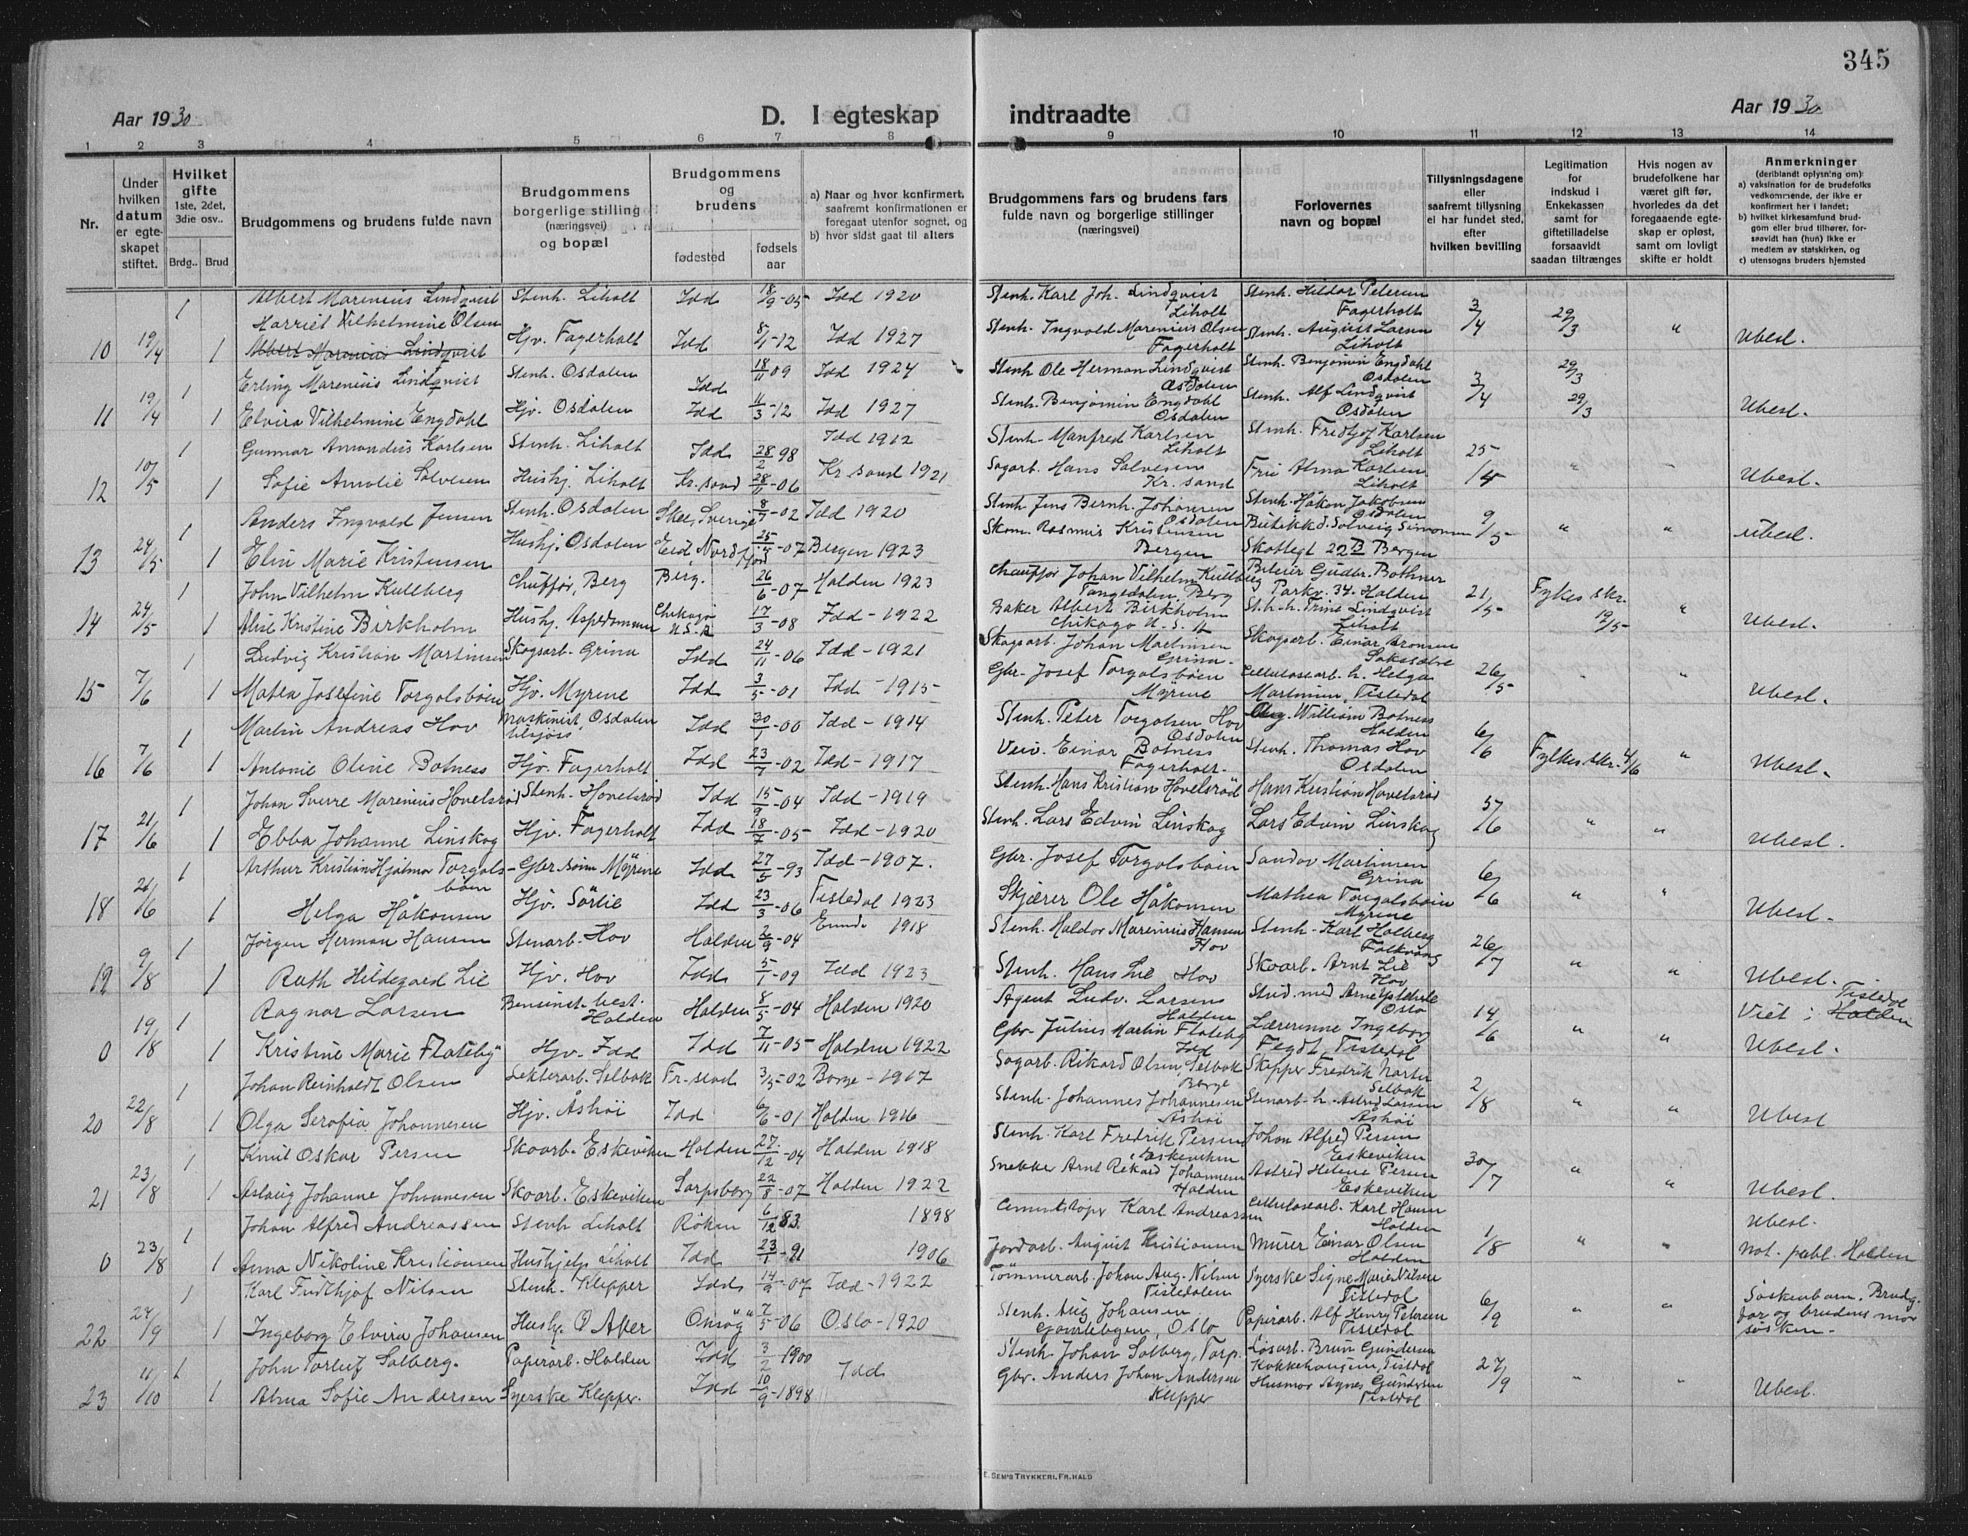 345
Aar 1930
D. I egteskap indtraadte
Aar 1930
1 2 3 4 5 6 7 8 9 10 11 12 13 14
Nr.
Under hvilken datum er egteskapet stiftet.
Hvilket gifte 1ste, 2det, 3die osv..
Brdg.. Brud
Brudgommens og brudens fulde navn
Brudgommens borgerlige stilling (næringsvei) og bopæl
Brudgommens og brudens
fødested
fødselsaar
a) Naar og hvor konfirmert, saafremt konfirmationen er foregaat utenfor sognet, og
b) hvor sidst gaat til alters
Brudgommens fars og brudens fars fulde navn og borgerlige stillinger (næringsvei)
Forlovernes navn og bopæl
Tillysningsdagene eller saafremt tillysning ei har fundet sted, efter hvilken bevilling
Legitimation for indskud i Enkekassen samt for giftetilladelse forsaavidt saadan tiltrænges
Hvis nogen av brudefolkene har været gift før, hvorledes da det foregaaende egteskap er opløst, samt om lovligt skifte er holdt
Anmerkninger (deriblandt oplysn'ng om):
a) vaksination for de brudefolks vedkommende, der ikke er konfirmert her i landet;
b) hvilket kirkesamfund brudgom eller brud tilhører, forsaavidt han (hun) ikke er medlem av statskirken, og
c) utensogns bruders hjemsted
1 Albert Marenius Lindqvist Stenh. Liholt Idd 18/9-05 Idd 1920 Stenh. Karl Joh. Lindqvist Liholt Stenh. Hildor Petersen Fagerholt 3/4 29/3
10 19/4 1 Harriet Vilhelmine Olsen Hjv. Fagerholt Idd 5/1-12 Idd 1927 Stenh. Ingvald Marenius Olsen Fagerholt Stenh. August Larsen Liholt " Ubesl.
Albert Marenius Lindqvist
1 Erling Marenius Lindqvist Stenh. Osdalen Idd 18/11 09 Idd 1924 Stenh Ole Herman Lindqvist Osdalen Stenh. Benjamin Engdahl Osdalen 3/4 29/3
11 19/4 1 Elvira Vilhelmine Engdahl Hjv. Osdalen Idd 11/3-12 Idd 1927 Stenh. Benjamin Engdahl Osdalen Stenh. Alf Lindqvist Osdalen 29/3 Ubesl.
1 Gunnar Amandus Karlsen Stenh. Liholt Idd 28/2 98 Idd 1912 Stenh. Manfred Karlsen Liholt Stenh. Fridtjof Karlsen Liholt
12 10/5 1 Sofie Amalie Solvesen Hushj. Liholt Kr. sand 28/11-06 Kr. sand 1921 Sagarb. Hans Salvesen Kr. sand Fru Alma Karlsen Liholt 25/4 " Ubesl.
1 Anders Ingvald Jensen Stenh. Osdalen Skee, Sverige 8/7-02 Idd 1920 Stenh. Jens Bernh. Johansen Osdalen Stenh. Håkon Jakobsen Osdalen
13 24/5 1 Elin Marie Kristensen Hushj. Osdalen Eid, Nordfjord 25/4-07 Bergen 1923 Skom. Rasmus Kristensen Bergen Butikkd. Solveig Simonsen Skottegt 22B Bergen 9/5 " " Ubesl.
1 John Vilhelm Kullberg Chuffør, Berg Berg. 26/6-07 Halden 1923 Chauffør Johan Vilhelm Kullberg Tangedalen, Berg Gudbr. Bothner Parkv. 34. Halden
14 24/5 1 Alise Kristine Birkholm Hushj. Aspedammen Chikago U.S.A 17/3-08 Idd - 1922 Baker Albert Birkholm Chikago U.S.A St.h.h. Trine Lindqvist Liholt 21/5 Fylkes skr. 12/5 " Ubesl.
1 Ludvig Kristian Martinsen Skogsarb. Grina Idd 24/11-06 Idd - 1921 Skogsarb. Johan Martinsen Grina Skogsarb. Einar Aronsen
15 7/6 1 Matea Josefine Torgalsbøen Hjv. Myrene Idd 3/5-01 Idd - 1915 Gbr. Josef Torgalsbøen Myrene Cellulosearb. h. Helga Martinsen Tistedal 26/5 " " Ubesl.
1 Martin Andreas Hov Maskinist, Osdalen tilsjøss Idd 30/1-00 Idd - 1914 Stenh. Peter Torgalsen Hov Osdalen William Botness Halden
16 7/6 1 Antonie Oline Botness Hjv. Fagerholt Idd 23/7-02 Idd - 1917 Veiv. Einar Botness Fagerholt Stenh. Thomas Hov Osdalen 6/6 Fylkes skr. 4/6 " Ubesl.
1 Johan Sverre Marenius Hovelsrød Stenh. Hovelsrød Idd 15/9-04 Idd - 1919 Stenh. Hans Kristian Hovelsrød Hans Kristian Hovelsrød
17 21/6 1 Ebba Johanne Linskog Hjv. Fagerholt Idd 18/7-05 Idd - 1920 Stenh. Lars Edvin Linskog Lars Edvin Linskog 5/6 " " Ubesl.
1 Arthur Kristian Hjalmar Torgalsbøen Gbr. sønn Myrene Idd 27/5-93 Idd - 1907. Gbr. Josef Torgalsbøen Sandov Martinsen Grina
18 21/6 1 Helga Håkonsen Hjv. Sørlie Idd 23/3-06 Tistedal 1923 Skjærer Ole Håkonsen Mathea Torgalsbøen Myrene 6/6 " " Ubesl.
1 Jørgen Herman Hansen Stenarb. Hov Halden 26/9-04 1918 Stenh. Haldor Marenius Hansen Hov Stenh. Karl Holberg
19 9/8 1 Ruth Hildegard Lie Hjv. Hov Idd 5/1-09 Idd 1923 Stenh. Hans Lie Hov Skoarb. Arnt Lie Hov 26/7 " " Ubesl.
1 Ragnar Larsen Bensinst. best. Halden Halden 8/5-04 Halden 1920 Agent Ludv. Larsen Halden Stud. med Arne Oslo Viet i Halden Tistedal
0 19/8 1 Kristine Marie Flateby Hjv. Idd Idd 7/11-05 Halden 1922 Gbr. Julius Martin Flateby Idd Lærerinne Ingeborg Tistedal 14/6 " " Ubesl.
1 Johan Reinholdt Olsen Lekterarb. Selbak Fr. stad 3/5-02 Borge - 1917 Sagarb. Rikard Olsen, Selbak Borge Skipper Fredrik Selbak
20 22/8 1 Olga Serafia Johannesen Hjv. Åshøi Idd 6/6-01 Halden 1916 Stenh. Johannes Johannesen Åshøi Stenarb. h. Astrid Larsen Åshøi 2/8 " " Ubesl
1 Knut Oskar Persen Skoarb. Eskeviken Halden 27/12-04 Halden 1918 Stenh. Karl Fredrik Persen Eskeviken Johan Alfred Persen Eskeviken
21 23/8 1 Aslaug Johanne Johannesen Skoarb. Eskeviken Sarpsborg 22/8-07 Halden 1922 Snekke Arnt Rikard Johannesen Halden Astrid Helene Persen Eskeviken 30/7 " " Ubesl.
1 Johan Alfred Andreassen Stenh Liholt Røken 6/12 83. 1898 Cementstøper Karl Andreassen Cellulosearb. Karl Hansen Halden Ubesl.
0 23/8 1 Anna Nikoline Kristiansen Hushjelp Liholt Idd 23/1-91 1906 Jordarb. August Kristiansen Murer Einar Olsen Halden 1/8 " " not. publ. Halden
1 Karl Fridthjof Nilsen Stenh. Klepper Idd 14/9-07 Idd - 1922 Tømmerarb. Johan Aug. Nilsen Tistedalen Syerske Signe Marie Nilsen Tistedal Søskenbarn. Brudg.
22 24/9 1 Ingeborg Elvira Johansen Hushj. Ø Aker 7/5-06 Oslo - 1920 Stenh. Aug Johansen Oslo Papirarb. Alf Henry Petersen Tistedal 6/9 " " far og brudens mor søsken.
1 John Torleif Solberg. Papirarb. Halden Idd 3/2 1900 Idd Stenh Johan Solberg, Torp. Løsarb. Brun Gundersen Kokkehaugen, Tistdal
23 4/10 1 Alma Sofie Andersen Syerske Klepper. Idd 10/9-1898 Gbr. Anders Johan Andersen Klepper Husmor Agnes Gundersen Tistedal 27/9 " " Ubesl.
E. SEM'S TRYKKERI, FR.HALD